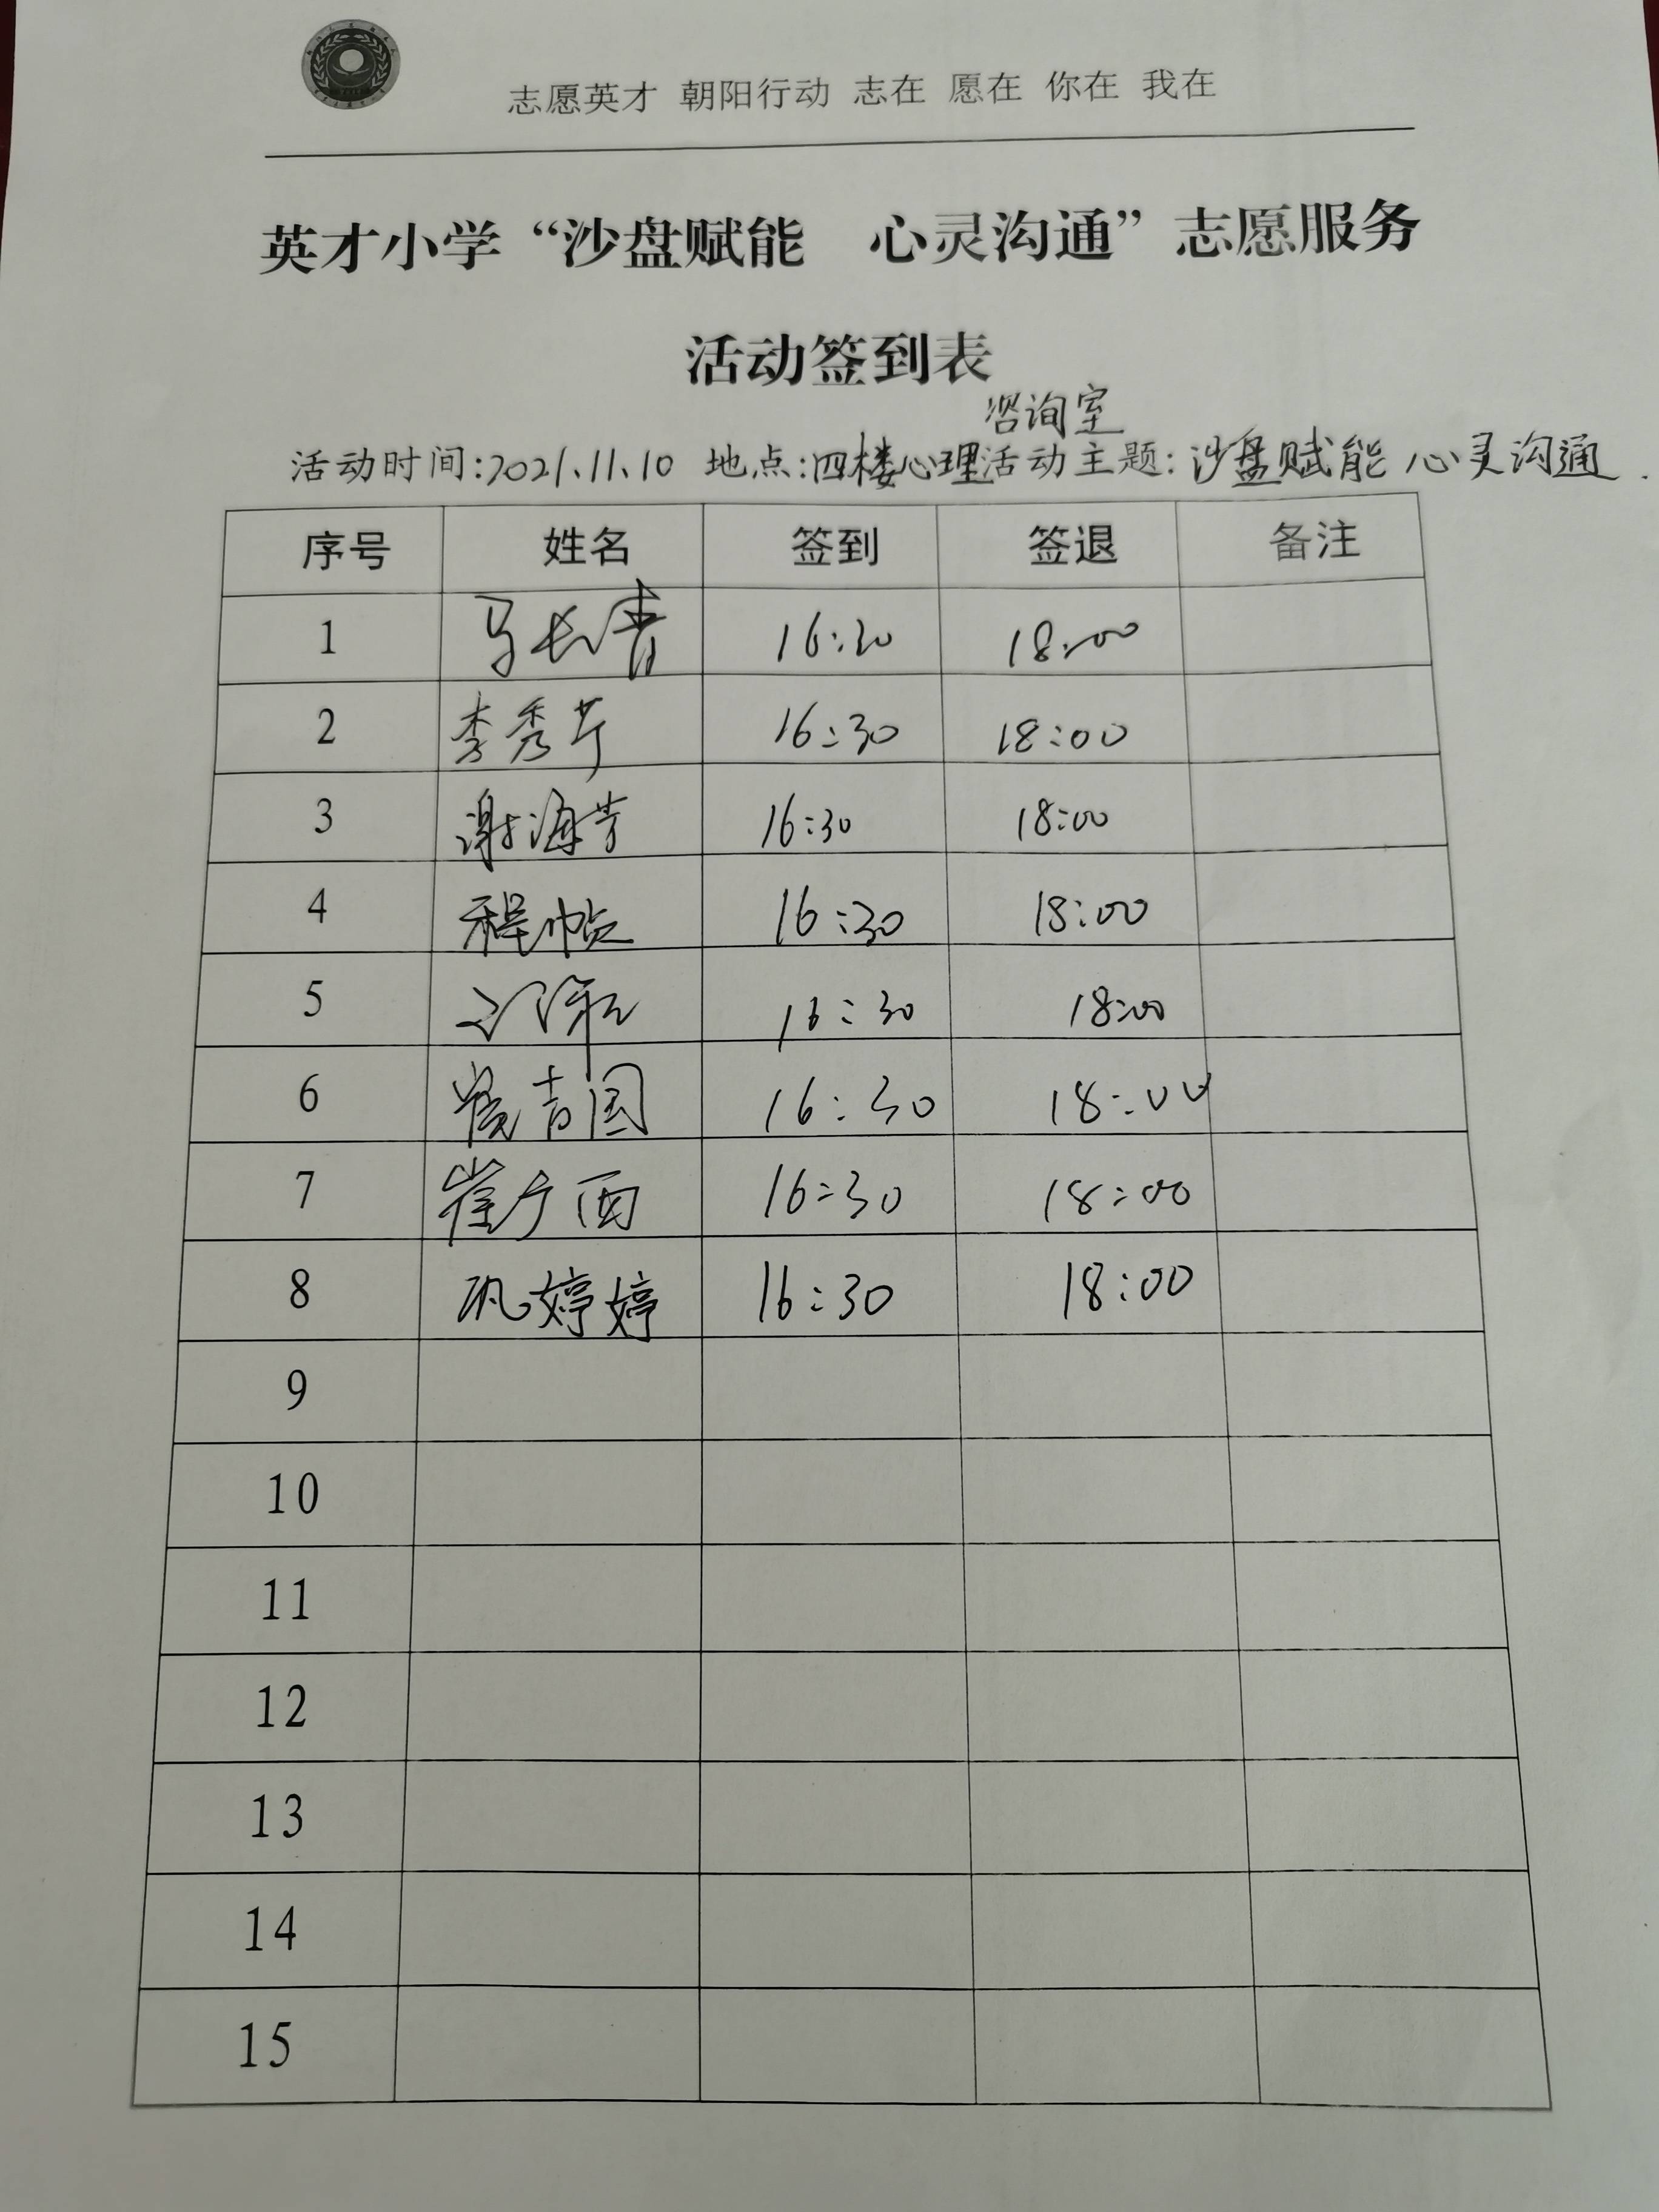 志愿英才 朝阳行动 志在 愿在 你在 我在
英才小学“沙盘赋能 心灵沟通”志愿服务
活动签到表
咨询室
活动时间:2021.11.10 地点:四楼心理活动主题:沙盘赋能 心灵沟通.
序号 姓名 签到 签退 备注
1 马长青 16:30 18:00
2 李秀芹 16:30 18:00
3 谢海芳 16:30 18:00
4 程帧 16:30 18:00
5 16:30 18:00
6 吉国 16:30 18:00
7 崔广西 16:30 18:00
8 巩婷婷 16:30 18:00
9
10
11
12
13
14
15